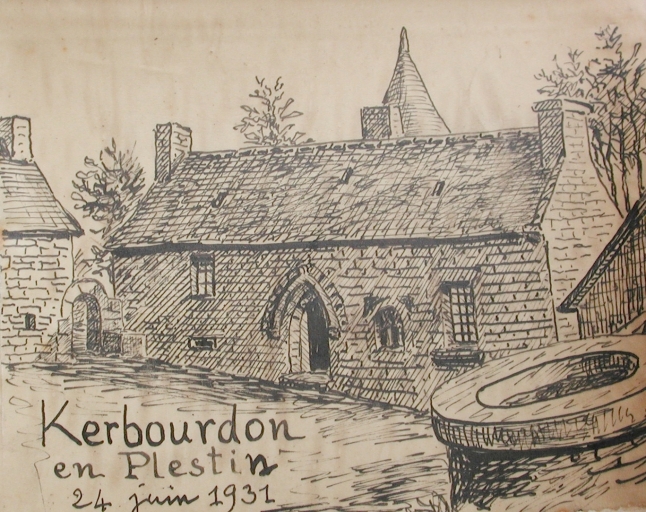 Kerbourdon
en Plestin
24 juin 1931